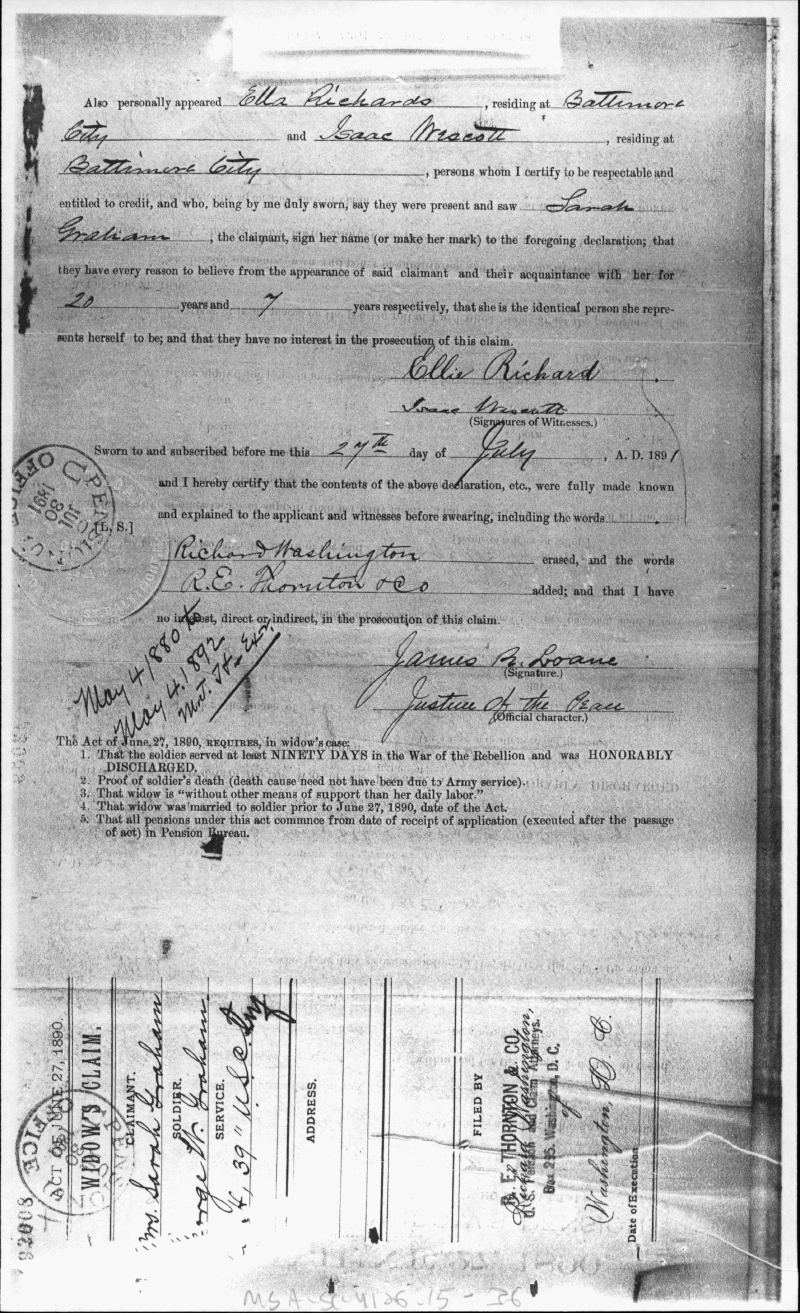 Also personally appeared Ella Richards, residing at Baltimore
City and Isaac Wescott, residing at
Baltimore City, persons whom I certify to be respectable and
entitled to credit, and who, being by me duly sworn, say they were present and saw Sarah
Graham, the claimant, sign her name (or make her mark) to the foregoing declaration; that
they have every reason to believe from the appearance of said claimant and their acquaintance with her for
20 years and 7 years respectively, that she is the identical person she repre-
sents herself to be; and that they have no interest in the prosecution of this claim.
Ellie Richard
Isaac Wescott
(Signatures of Witnesses.)
Sworn to and subscribed before me this 27th day of July, A. D. 1891
and I hereby certify that the contents of the above declaration, etc., were fully made known
and explained to the applicant and witnesses before swearing, including the words
[L. S.]
Richard Washington erased, and the words
R. E. Thornton & Co added; and that I have
no interest, direct or indirect, in the prosecution of this claim.
PENSION OFFICE
JUL 30 1891
James R. Loane
(Signature.)
Justice of the Peace
(Official character.)
May 4 1880 to
May 4, 1892
The Act of June, 27, 1890, REQUIRES, in widow's case:
1. That the soldier served at least NINETY DAYS in the War of the Rebellion and was HONORABLY
DISCHARGED.
2. Proof of soldier's death (death cause need not have been due to Army service).
3. That widow is "without other means of support than her daily labor."
4. That widow was married to soldier prior to June 27, 1890, date of the Act.
5. That all pensions under this act commnce from date of receipt of application (executed after the passage
of act) in Pension Bureau.
ACT OF JUNE 27, 1890.
WIDOW'S CLAIM.
CLAIMANT.
Mrs. Sarah Graham
SOLDIER.
George W. Graham
SERVICE.
H, 39" U.S.C. Inf
ADDRESS.
FILED BY
R. E. THORNTON & CO.
Richard Washington,
U. S. Pension and Claim Attorneys,
Box 285, Washington, D. C.
of
Washington, D. C.
Date of Execution
MSA-SC-4126-15-36